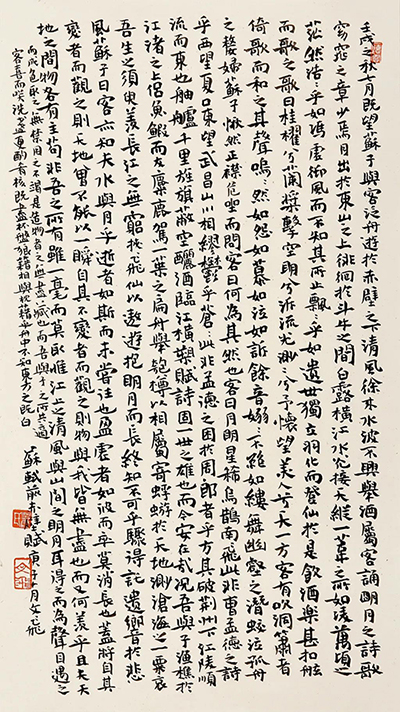 壬戌之秋七月既望蘇子與客泛舟遊於赤壁之下清風徐來水波不興舉酒屬客誦明月之詩歌
窈窕之章少焉月出於東山之上徘徊於斗牛之間白露橫江水光接天縱一葦之所如凌萬頃之
茫然浩浩乎如馮虛御風而不知其所止飄飄乎如遺世獨立羽化而登仙於是飲酒樂甚扣舷
而歌之歌曰桂櫂兮蘭槳擊空明兮泝流光渺渺兮予懷望美人兮天一方客有吹洞簫者
倚歌而和之其聲嗚嗚然如怨如慕如泣如訴餘音嫋嫋不絕如縷舞幽壑之潛蛟泣孤舟
之嫠婦蘇子愀然正襟危坐而問客曰何為其然也客曰月朗星稀烏鵲南飛此非曹孟德之詩
乎西望夏口東望武昌山川相繆鬱乎蒼蒼此非孟德之困於周郎者乎方其破荊州下江陵順
流而東也舳艫千里旌旗蔽空釃酒臨江橫槊賦詩固一世之雄也而今安在哉況吾與子漁樵於
江渚之上侶魚蝦而友麋鹿駕一葉之扁舟舉匏樽以相屬寄蜉蝣於天地渺滄海之一粟哀
吾生之須臾羨長江之無窮挾飛仙以遨遊抱明月而長終知不可乎驟得託遺響於悲
風蘇子曰客亦知夫水與月乎逝者如斯而未嘗往也盈虛者如彼而卒莫消長也蓋將自其
變者而觀之則天地曾不能以一瞬自其不變者而觀之則物與我皆無盡也而又何羨乎且夫天
地之間物各有主苟非吾之所有雖一毫而莫取惟江上之清風與山間之明月耳得之而為聲目遇之
而成色取之無禁用之不竭是造物者之無盡藏也而吾與子之所共適
客喜而笑洗盞更酌肴核既盡杯盤狼藉相與枕藉乎舟中不知東方之既白
蘇軾前赤壁賦 庚子十月文飛